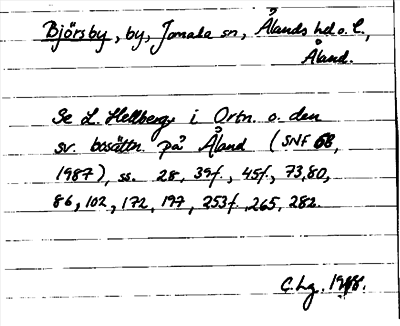 Björsby, by, Jomala sn, Ålands hd o. l.,
Åland.
Se L. Hellberg i Ortn. o. den
sv. bosättn. på Åland (SNF 68,
1987), ss. 28, 39f., 45f., 73, 80,
86, 102, 172, 197, 253f. 265, 282.
C. Lg.